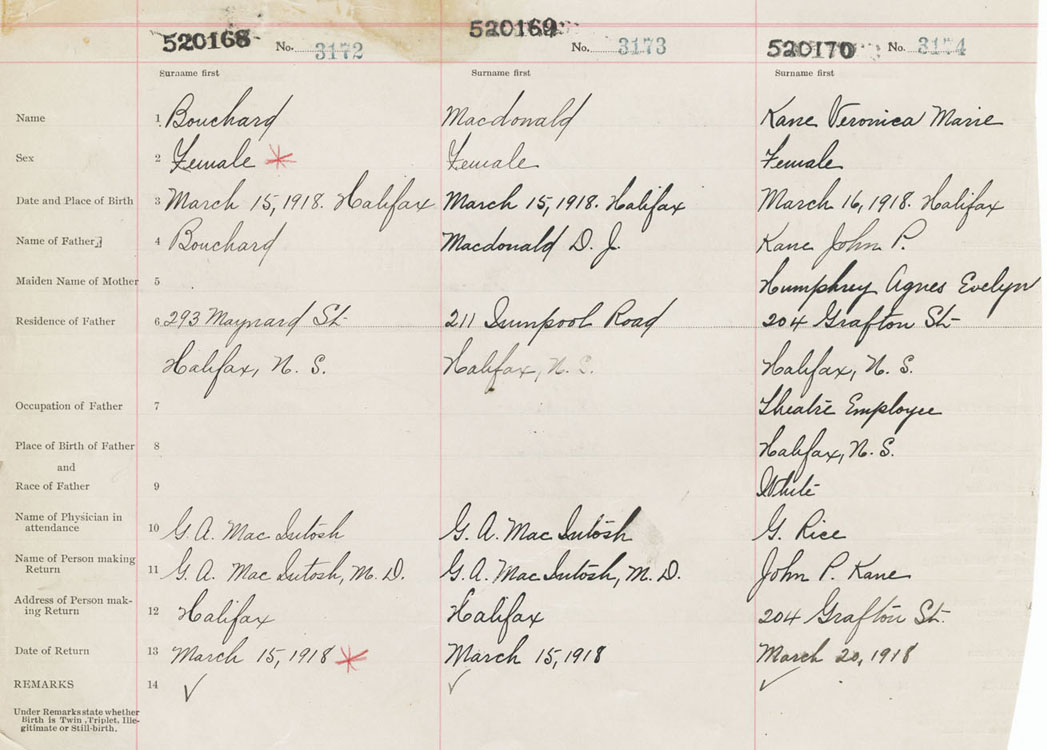 520168 No. 3172 520169 No. 3173 520170 No. 3174
Surname first Surname first Surname first
Name 1 Bouchard Macdonald Kane Veronica Marie
Sex 2 Female Female Female
Date and Place of Birth 3 March 15, 1918. Halifax March 15, 1918. Halifax March 16, 1918. Halifax
Name of Father 4 Bouchard Macdonald D. J. Kane John P.
Maiden Name of Mother 5 Humphrey Agnes Evelyn
Residence of Father 6 293 Maynard St. 211 Road 204 Grafton St.
Halifax, N. S. Halifax, N. S. Halifax, N. S.
Occupation of Father 7 Theatre Employee
Place of Birth of Father 8 Halifax, N. S.
and
Race of Father 9 White
Name of Physician in
attendance 10 G. A. Mac Intosh G. A. Mac Intosh G. Rice
Name of Person making
Return 11 G. A. Mac Intosh, M. D. G. A. Mac Intosh, M. D. John P. Kane
Address of Person mak-
ing Return 12 Halifax Halifax 204 Grafton St.
Date of Return 13 March 15, 1918 March 15, 1918 March 20, 1918
REMARKS 14
Under Remarks state whether
Birth is Twin, Triplet, Ille-
gitimate or Still-birth.